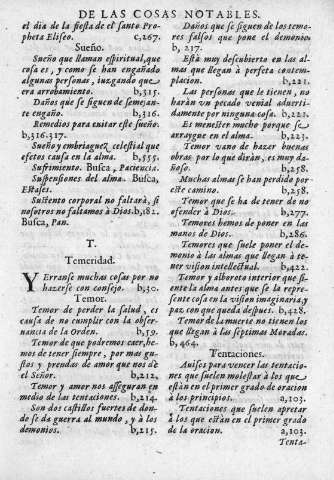 DE LAS COSAS NOTABLES.
el dia de la fiesta de el santo Pro-
pheta Eliseo. c,267.
Sueño.
Sueño que llaman espiritual, que
cosa es, y como se han engañado
algunas personas, iuzgando que
era arrobamiento. b,315.
Daños que se siguen de semejan-
te engaño. b,316.
Remedios para euitar este sueño.
b,316.317.
Sueño y embriaguez celestial que
efetos causa en la alma. b,555.
Sufrimiento. Busca, Paciencia.
Suspensiones del alma. Busca,
Extases.
Sustento corporal no faltarà, si
nosotros no faltamos à Dios. b,182.
Busca, Pan.
T.
Temeridad.
YErranse muchas cosas por no
hazerse con consejo. b,30.
Temor.
Temor de perder la salud, es
causa de no cumplir con la obser-
uancia de la Orden. b,59.
Temor de que podremos caer, he-
mos de tener siempre, por mas gus-
tos y prendas de amor que nos dè
el Señor. b,212.
Temor y amor nos asseguran en
medio de las tentaciones. b,214.
Son dos castillos fuertes de don-
de se da guerra al mundo, y à los
demonios. b,215.
Daños que se siguen de los temo-
res falsos que pone el demonio.
b, 217.
Està muy descubierto en las al-
mas que llegan à perfeta contem-
placion. b,221.
Las personas que le tienen, no
haràn vn pecado venial aduerti-
damente por ninguna cosa. b,221.
Es menester mucho porque se
arraygue en el alma. b,223.
Temor vano de hazer buenas
obras por lo que diràn, es muy da-
ñoso. b,258.
Muchas almas se han perdido por
este camino. b,258.
Temor que se ha de tener de no
ofender à Dios. b,277.
Temores hemos de poner en las
manos de Dios. b,286.
Temores que suele poner el de-
monio à las almas que llegan à te-
ner vision intellectual. b,422.
Temor y alboroto interior que si-
ente la alma antes que se la repre-
sente cosa en la vision imaginaria, y
paz con que queda despues. b,428.
Temor de la muerte no tienen los
que llegan à las septimas Moradas.
b,464.
Tentaciones.
Auisos para vencer las tentacio-
nes que suelen molestar à los que
estàn en el primer grado de oracion
à los principios. a,103.
Tentaciones que suelen apretar
à los que estàn en el primer grado
de la oracion. a,103.
Tenta-